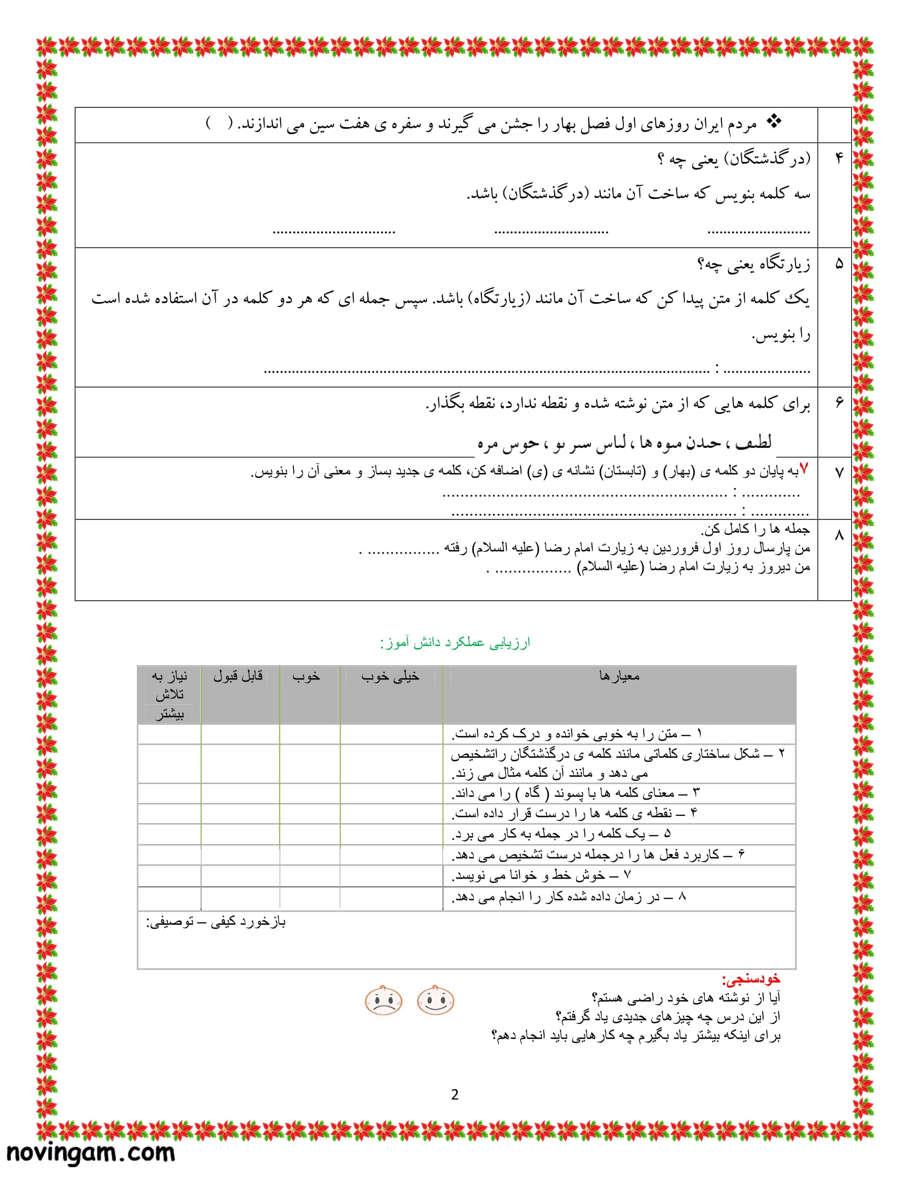 ❖ مردم ایران روزهای اول فصل بهار را جشن می گیرند و سفره ی هفت سین می اندازند. (   )
۴ (درگذشتگان) یعنی چه ؟
سه کلمه بنویس که ساخت آن مانند (درگذشتگان) باشد.
.......................... ............................. ...............................
۵ زیارتگاه یعنی چه؟
یک کلمه از متن پیدا کن که ساخت آن مانند (زیارتگاه) باشد. سپس جمله ای که هر دو کلمه در آن استفاده شده است
را بنویس.
...................... : ................................................................................................................
۶ برای کلمه هایی که از متن نوشته شده و نقطه ندارد، نقطه بگذار.
لطٮڡ ، حٮدں مٮوه ها ، لٮاس سٮر ٮو ، حوس مره
۷ ۷به پایان دو کلمه ی (بهار) و (تابستان) نشانه ی (ی) اضافه کن، کلمه ی جدید بساز و معنی آن را بنویس.
............. : ..............................................................
............. : ..............................................................
۸ جمله ها را کامل کن.
من پارسال روز اول فروردین به زیارت امام رضا (علیه السلام) رفته ................ .
من دیروز به زیارت امام رضا (علیه السلام) ................. .
ارزیابی عملکرد دانش آموز:
معیارها خیلی خوب خوب قابل قبول نیاز به
تلاش
بیشتر
۱ – متن را به خوبی خوانده و درک کرده است.
۲ – شکل ساختاری کلماتی مانند کلمه ی درگذشتگان راتشخیص
می دهد و مانند آن کلمه مثال می زند.
۳ – معنای کلمه ها با پسوند ( گاه ) را می داند.
۴ – نقطه ی کلمه ها را درست قرار داده است.
۵ – یک کلمه را در جمله به کار می برد.
۶ – کاربرد فعل ها را درجمله درست تشخیص می دهد.
۷ – خوش خط و خوانا می نویسد.
۸ – در زمان داده شده کار را انجام می دهد.
بازخورد کیفی – توصیفی:
خودسنجی:
آیا از نوشته های خود راضی هستم؟
از این درس چه چیزهای جدیدی یاد گرفتم؟
برای اینکه بیشتر یاد بگیرم چه کارهایی باید انجام دهم؟
2
novingam.com